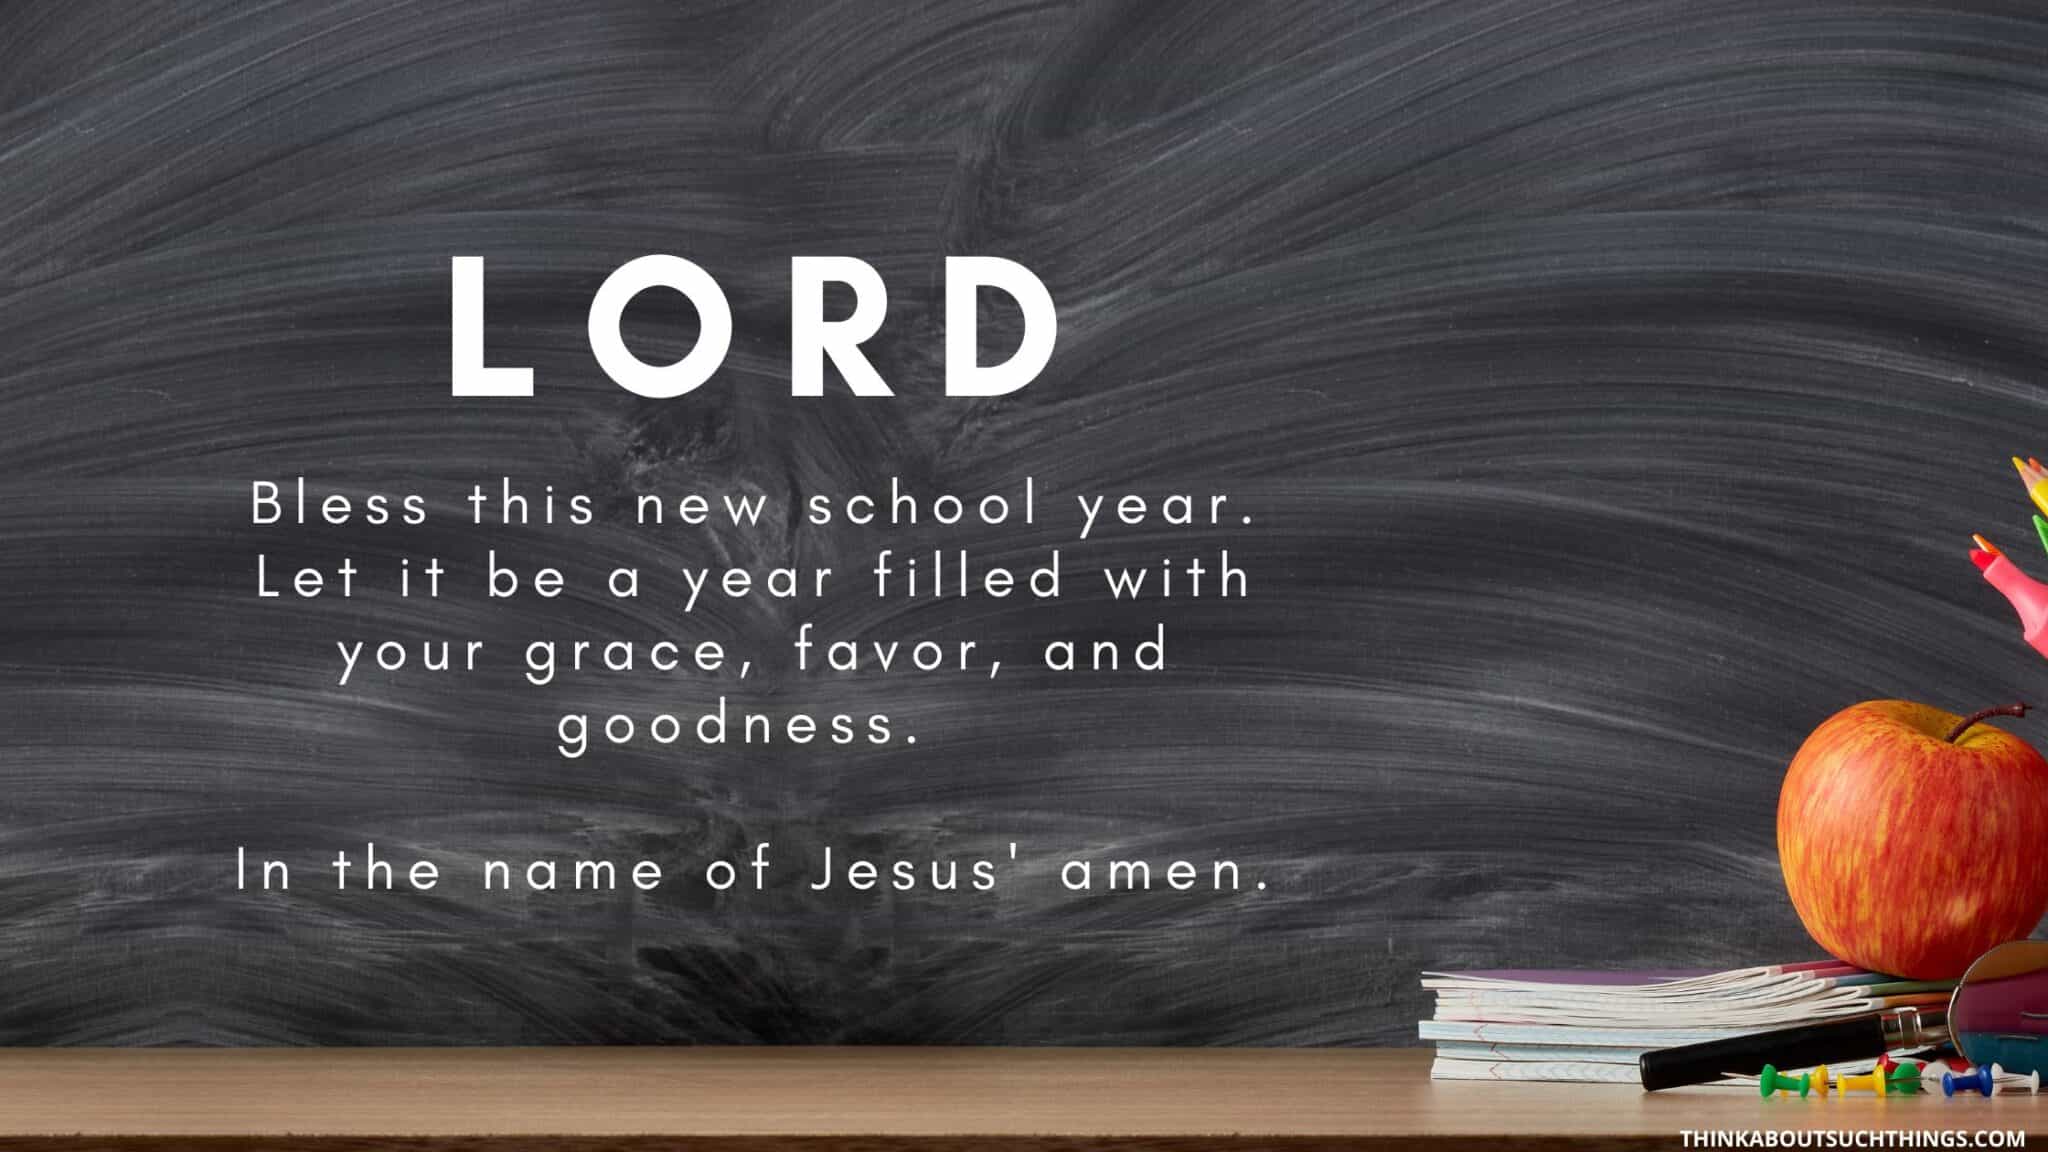 LORD
Bless this new school year.
Let it be a year filled with
your grace, favor, and
goodness.
In the name of Jesus' amen.
THINKABOUTSUCHTHINGS.COM